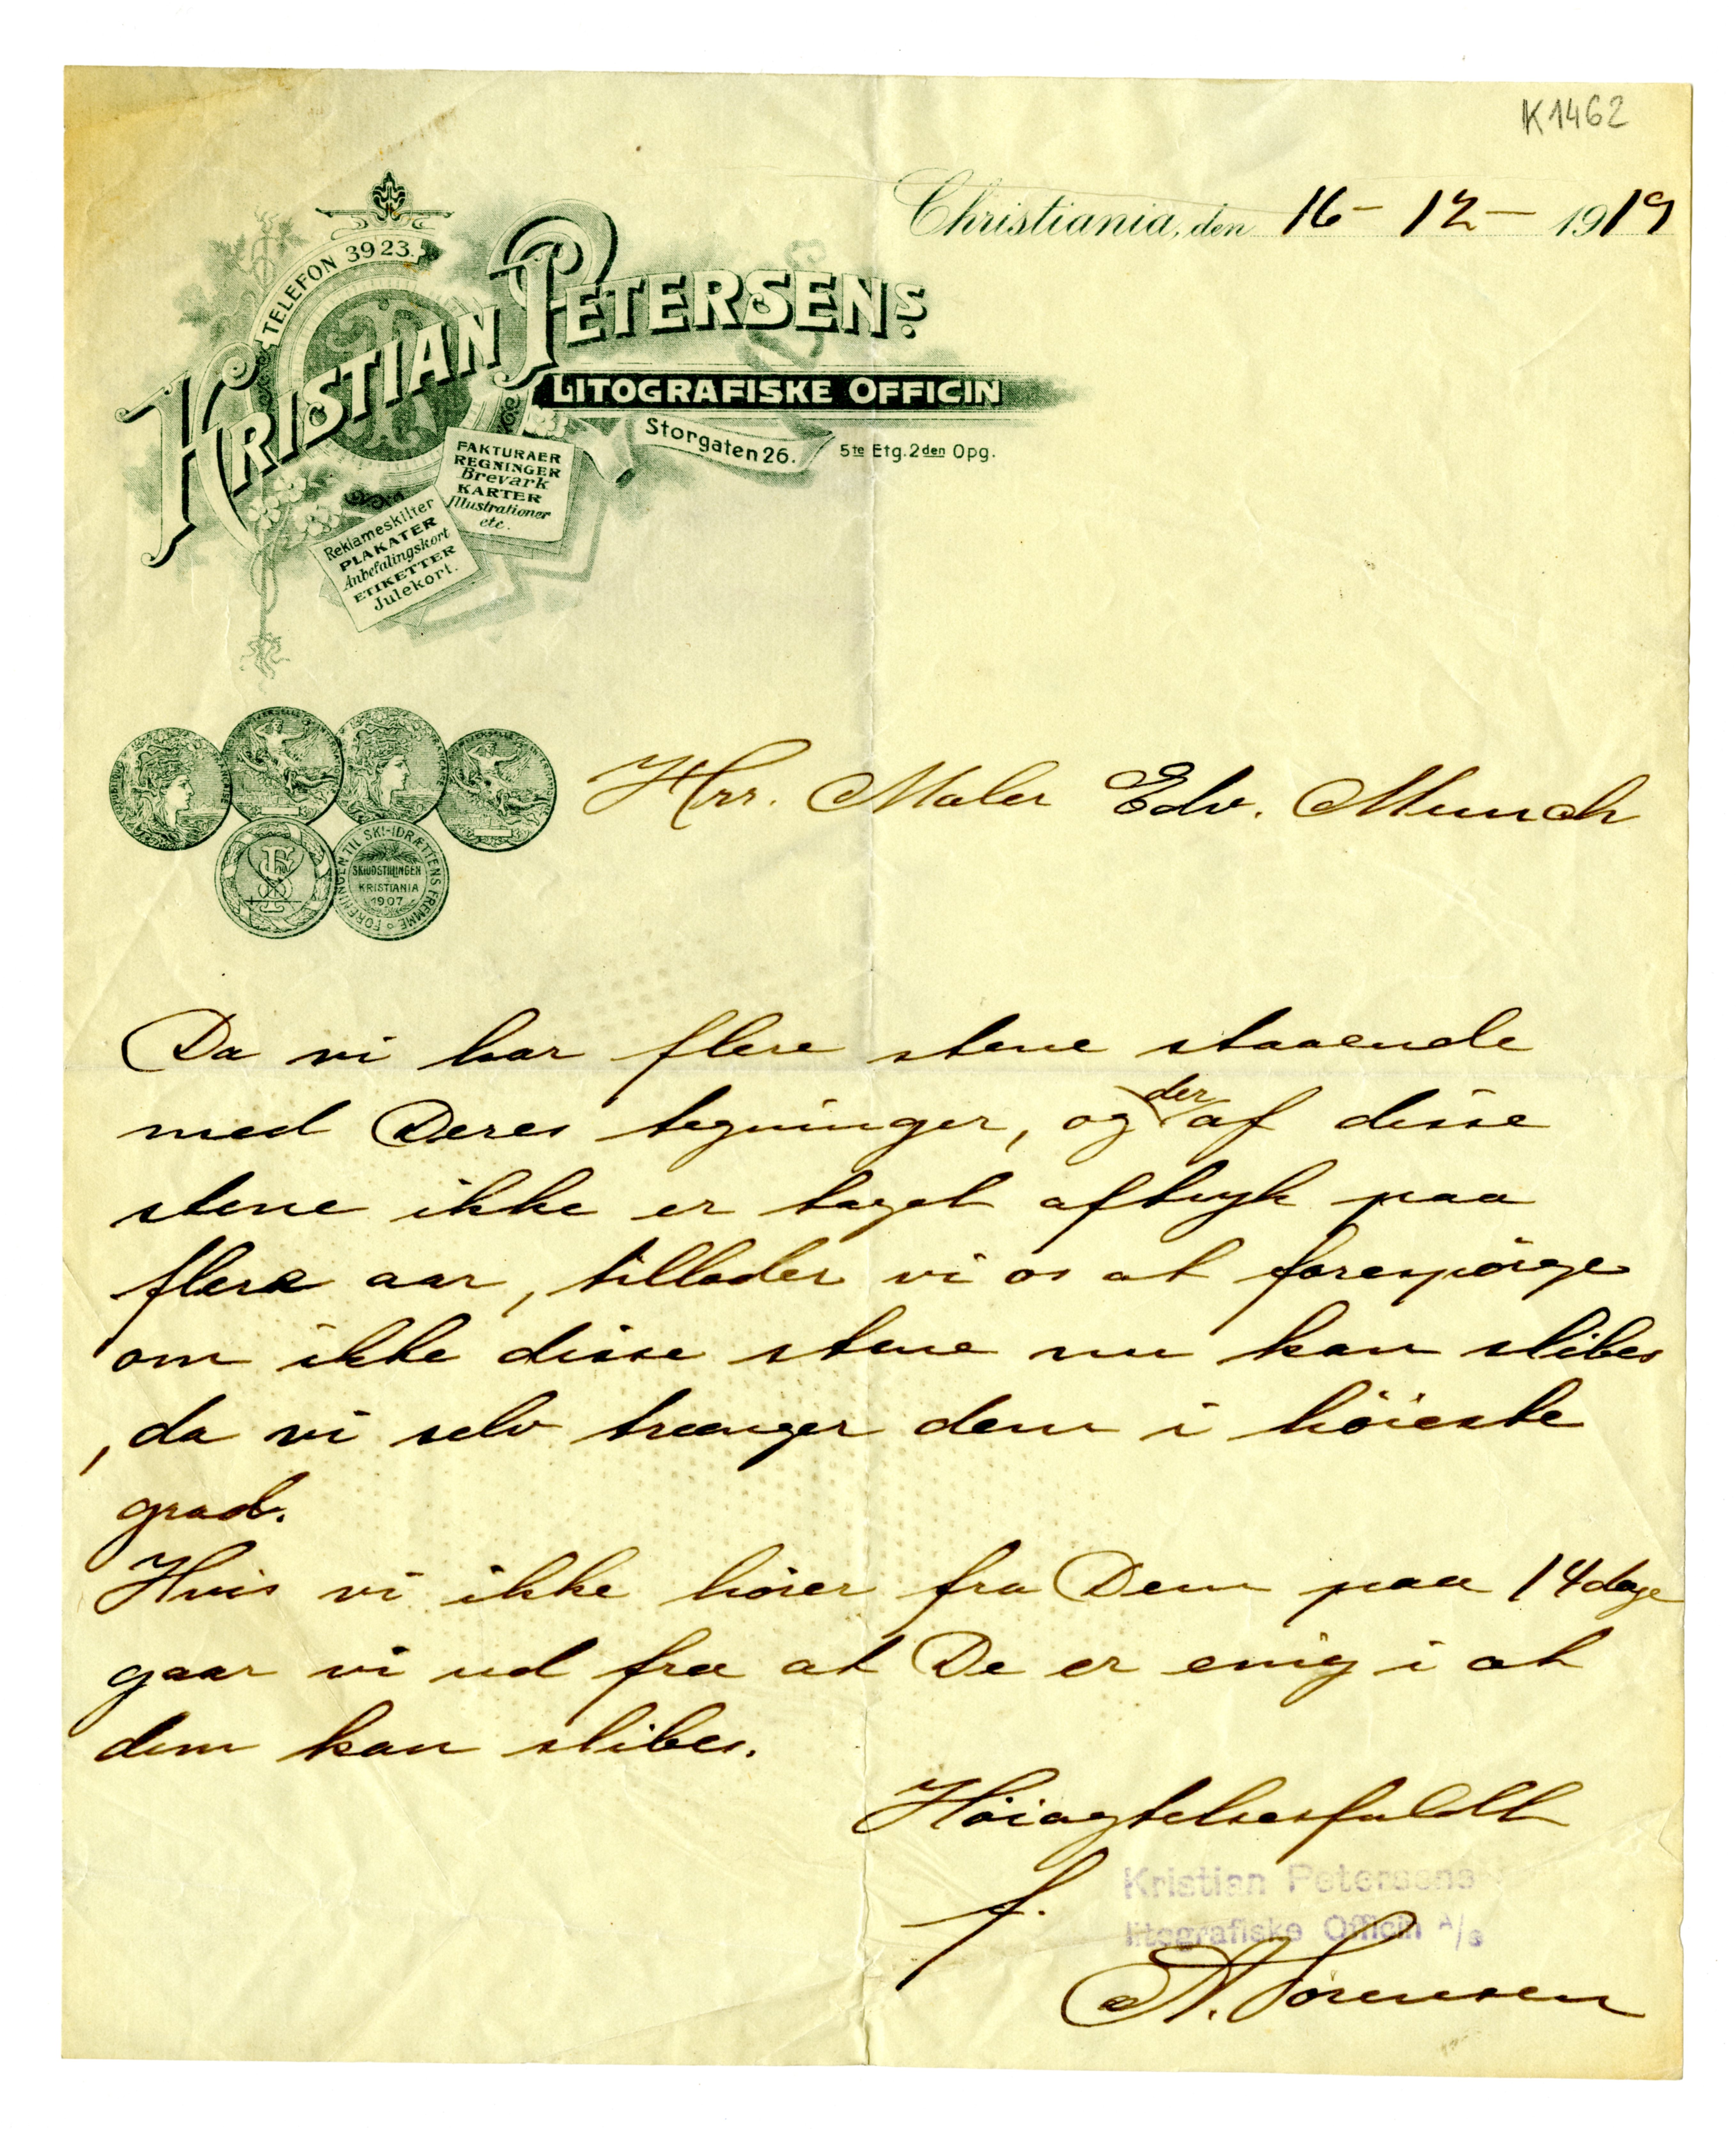 K1462
Christiania, den 16 – 12 – 1919
TELEFON 3923.
KRISTIAN PETERSENS
LITOGRAFISKE OFFICIN
Storgaten 26. 5te Etg. 2den Opg.
FAKTURAER
REGNINGER
Brevark
KARTER
Illustrationer
etc.
Reklameskilter
PLAKATER
Anbefalingskort
ETIKETTER
Julekort.
FORENINGEN TIL SKI-IDRÆTTENS FREMME
SKIUDSTILLINGEN
KRISTIANIA
1907
Hrr. Maler Edv. Munch
Da vi har flere stene staaende
med Deres tegninger, og der af disse
stene ikke er taget aftryk paa
flere aar, tillader vi os at forespørge
om ikke disse stene nu kan slibes
, da vi selv trænger dem i høieste
grad.
Hvis vi ikke hører fra Dem paa 14 dage
gaar vi ud fra at De er enig i at
dem kan slibes.
Høiagtelsesfuldt
f. Kristian Petersens
litografiske Officin A/S
A. Sørensen